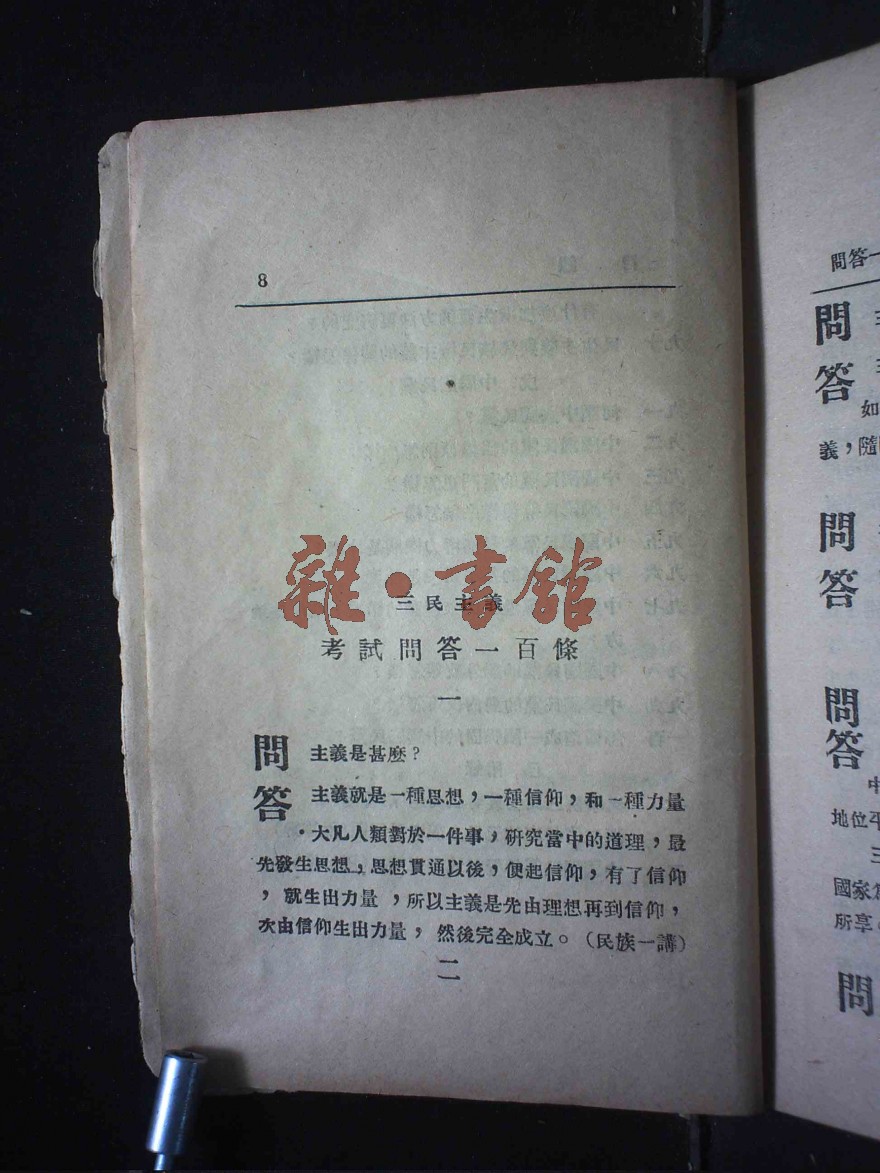 8
雜·書館
三民主義
考試問答一百條
一
問 主義是甚麼？
答 主義就是一種思想，一種信仰，和一種力量
・大凡人類對於一件事，研究當中的道理，最
先發生思想，思想貫通以後，便起信仰，有了信仰
，就生出力量，所以主義是先由理想再到信仰，
次由信仰生出力量，然後完全成立。（民族一講）
二
問答一
問
答
如
義，隨
問
答
問
答
中
地位平
三
國家
所享。
問